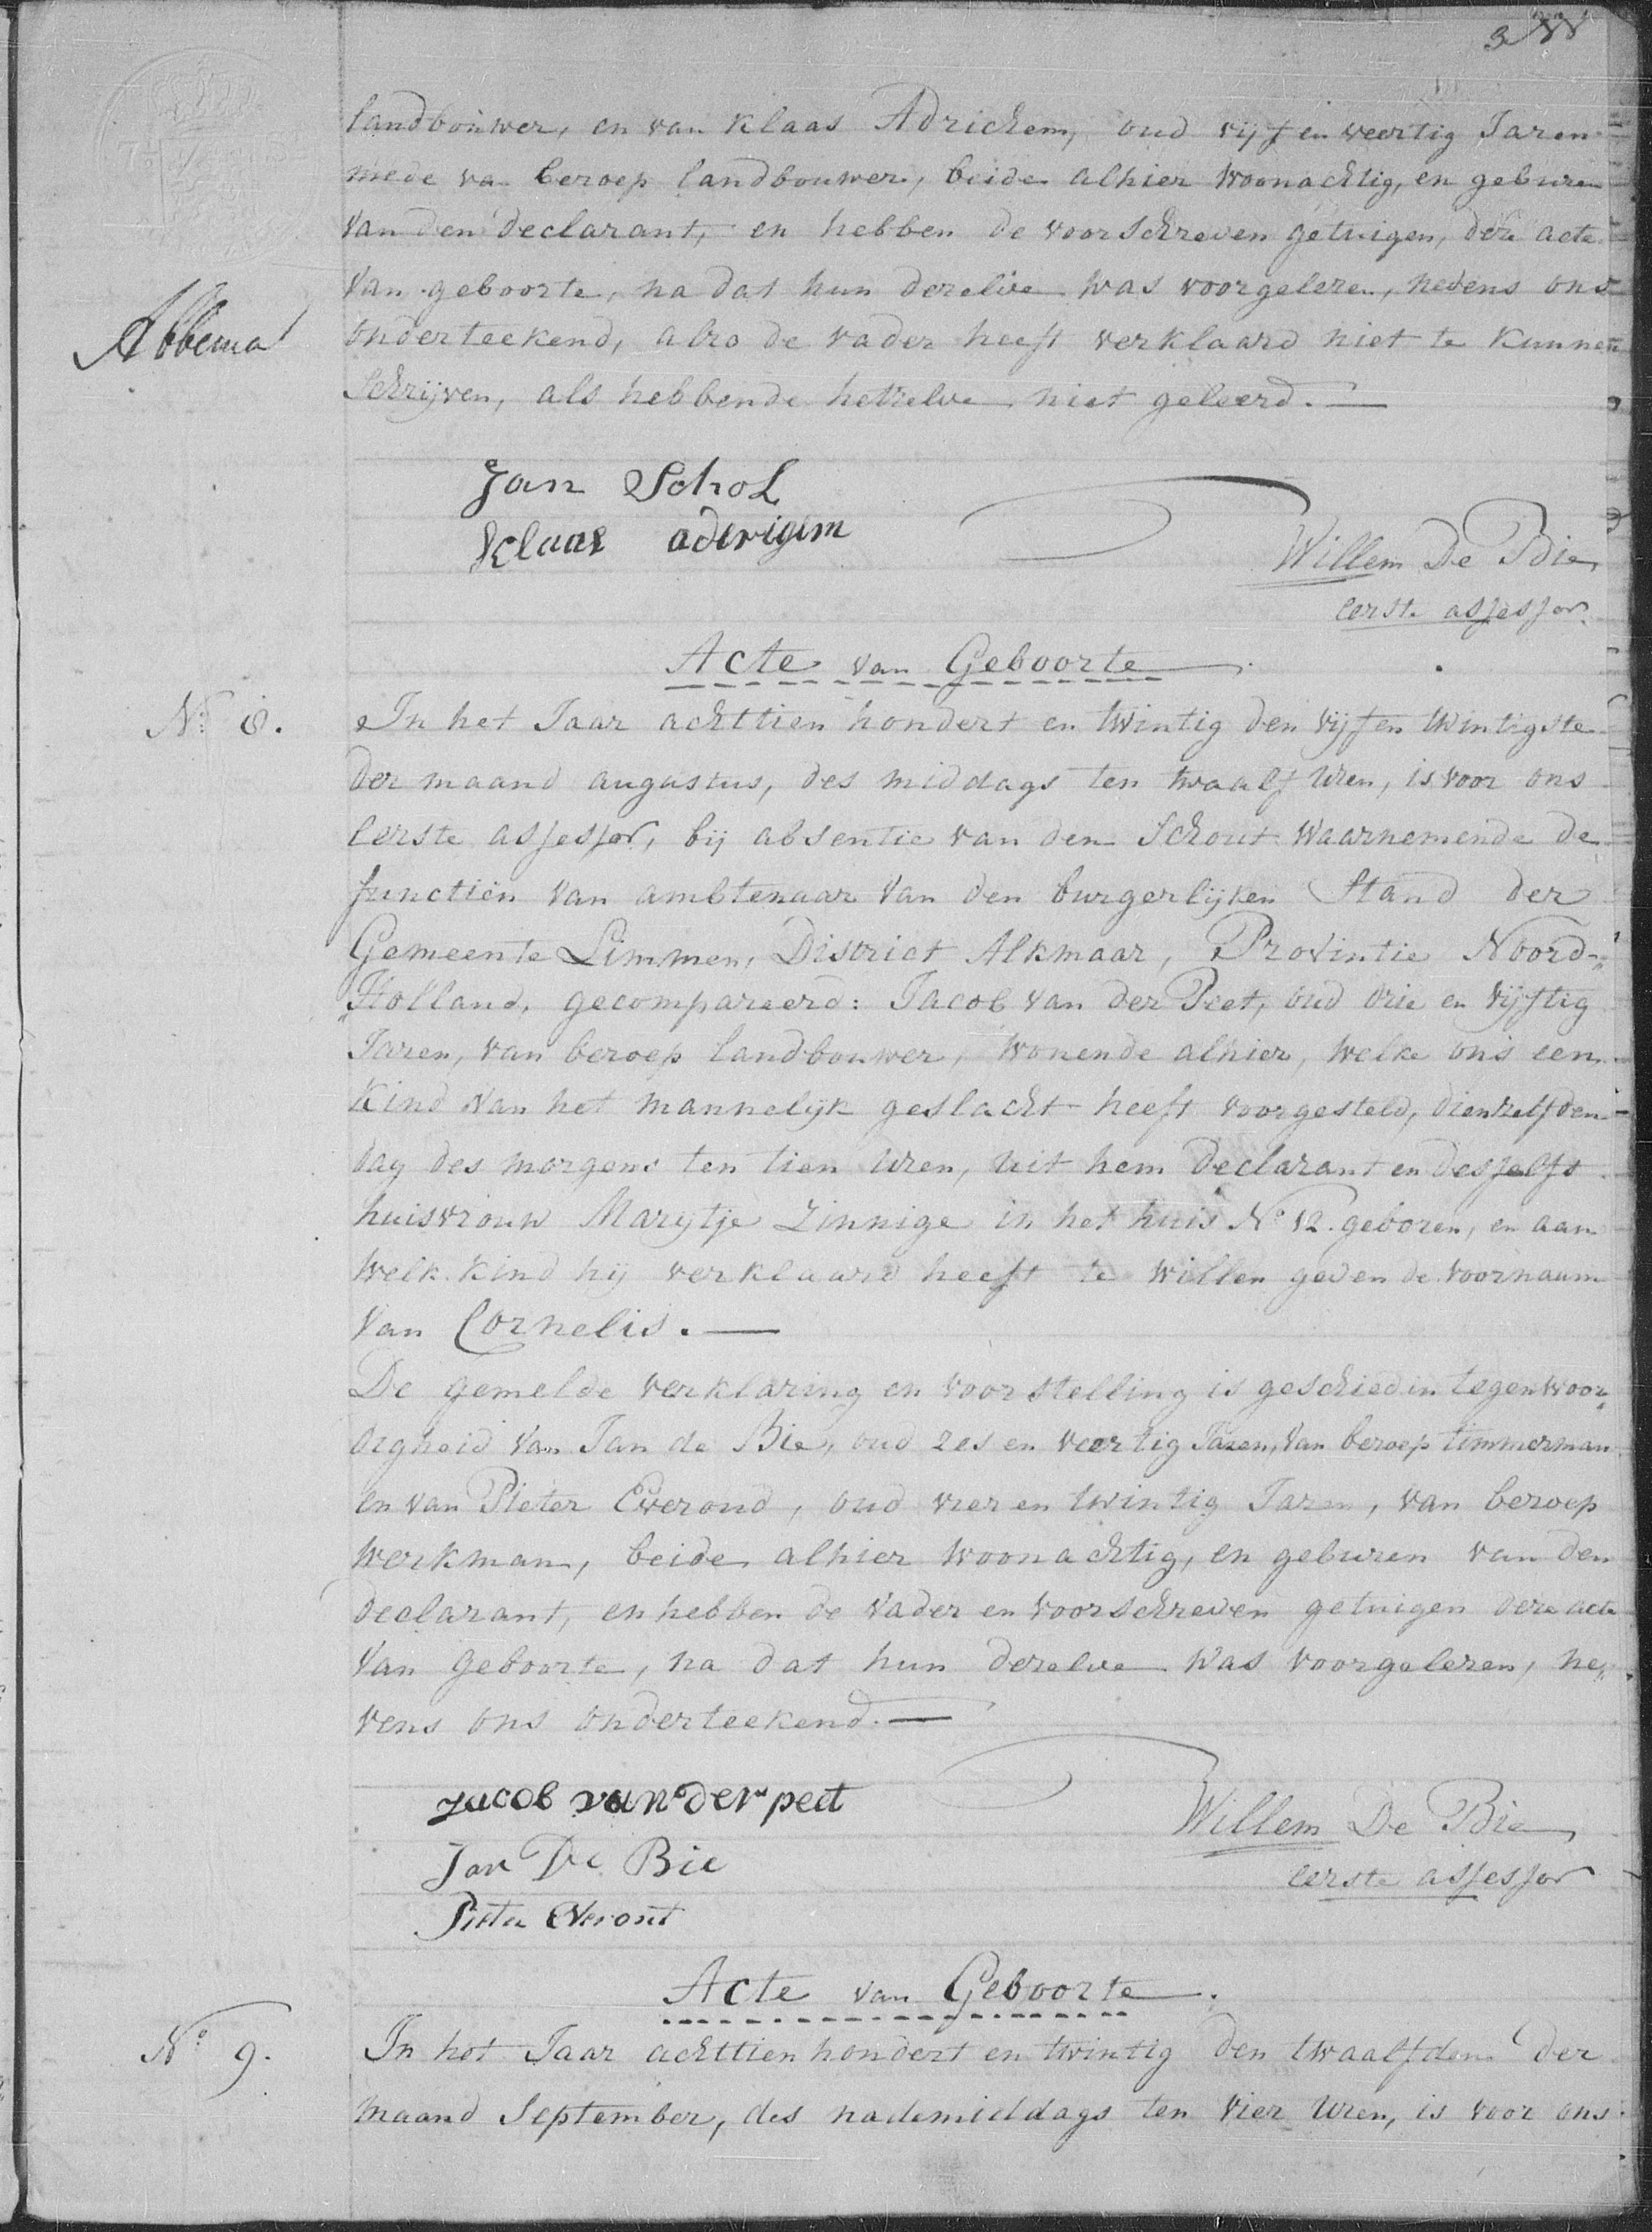 3
landbouwer, en van Klaas Adrichem, oud vijf en veertig Jaren
mede van beroep landbouwer, beide alhier woonachtig, en geburen
van den declarant, en hebben de voorschreven getuigen, deze acte
van geboorte, na dat hun dezelve was voorgelezen, nevens ons
Abbema
onderteekend, alzo de vader heeft verklaard niet te kunnen
Schrijven, als hebbende hetzelve niet geleerd. —
Jan Schol
Klaas aderigem
Willem De Bie
eerste assessor.
Acte van Geboorte.
No. 8.
In het Jaar achttien hondert en twintig den vijf en twintigste
der maand augustus, des middags ten twaalf uren, is voor ons
eerste assessor, bij absentie van den Schout waarnemende de
functiën van ambtenaar van den burgerlijken Stand der
Gemeente Limmen, District Alkmaar, Provintie Noord-„
„Holland, gecompareerd: Jacob van der Peet, oud drie en vijftig
Jaren, van beroep landbouwer, wonende alhier, welke ons een
Kind van het mannelijk geslacht heeft voorgesteld, dienzelfden
dag des morgens ten tien uren, uit hem Declarant en desselfs
huisvrouw Marijtje Zinnige in het huis No. 12. geboren, en aan
welk kind hij verklaard heeft te willen geven de voornaam
van Cornelis. —
De gemelde verklaring en voorstelling is geschied in tegenwoor„
digheid van Jan de Bie, oud zes en veertig Jaren, van beroep timmerman
en van Pieter Everoud, oud vier en twintig Jaren, van beroep
werkman, beide alhier woonachtig, en geburen van den
declarant, en hebben de vader en voorschreven getuigen deze acte
van geboorte, na dat hun dezelve was voorgelezen, ne„
vens ons onderteekend. —
Jacob van der peet
Willem De Bie
Jan De Bie
eerste assessor
Pieter Everout
Acte van Geboorte.
No. 9.
In het Jaar achttien hondert en twintig den twaalfden der
maand September, des nademiddags ten vier uren, is voor ons